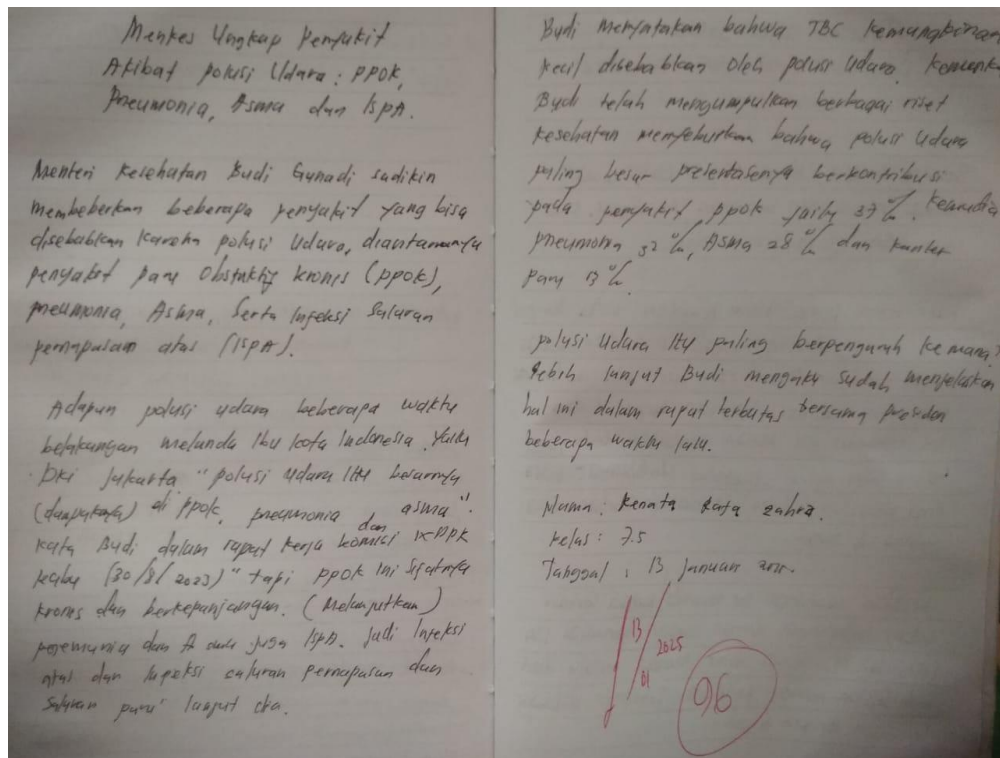 Menkes Ungkap Penyakit
Akibat polusi Udara : PPOK,
Pneumonia, Asma dan ISPA.
Menteri Kesehatan Budi Gunadi sadikin
membeberkan beberapa penyakit yang bisa
disebabkan karena polusi Udara, diantaranya
penyakit paru Obstruktif kronis (PPOK),
pneumonia, Asma, Serta Infeksi Saluran
pernapasan atas (ISPA).
Adapun polusi udara beberapa waktu
belakangan melanda Ibu kota Indonesia yaitu
DKI Jakarta "polusi udara itu besarnya
(dampaknya) di ppok, pneumonia dan asma".
kata Budi dalam rapat kerja komisi IX DPR
Rabu (30/8/2023) "tapi ppok ini sifatnya
kronis dan berkepanjangan. (Melanjutkan)
dan juga ISPA. Jadi Infeksi
atas dan Infeksi saluran pernapasan dan
Saluran paru" lanjut dia.
Budi menyatakan bahwa TBC kemungkinan
kecil disebabkan oleh polusi Udara.
Budi telah mengumpulkan berbagai riset
kesehatan menyebutkan bahwa polusi Udara
paling besar presentasenya berkontribusi
pada penyakit ppok yaitu 37%.
pneumonia 32%, Asma 28% dan kanker
paru 13%.
polusi Udara itu paling berpengaruh ke mana?
Lebih lanjut Budi mengaku sudah menjelaskan
hal ini dalam rapat terbatas bersama presiden
beberapa waktu lalu.
Nama : Renata zahra.
kelas : 7.5
Tanggal : 13 Januari
13/01 2025
96